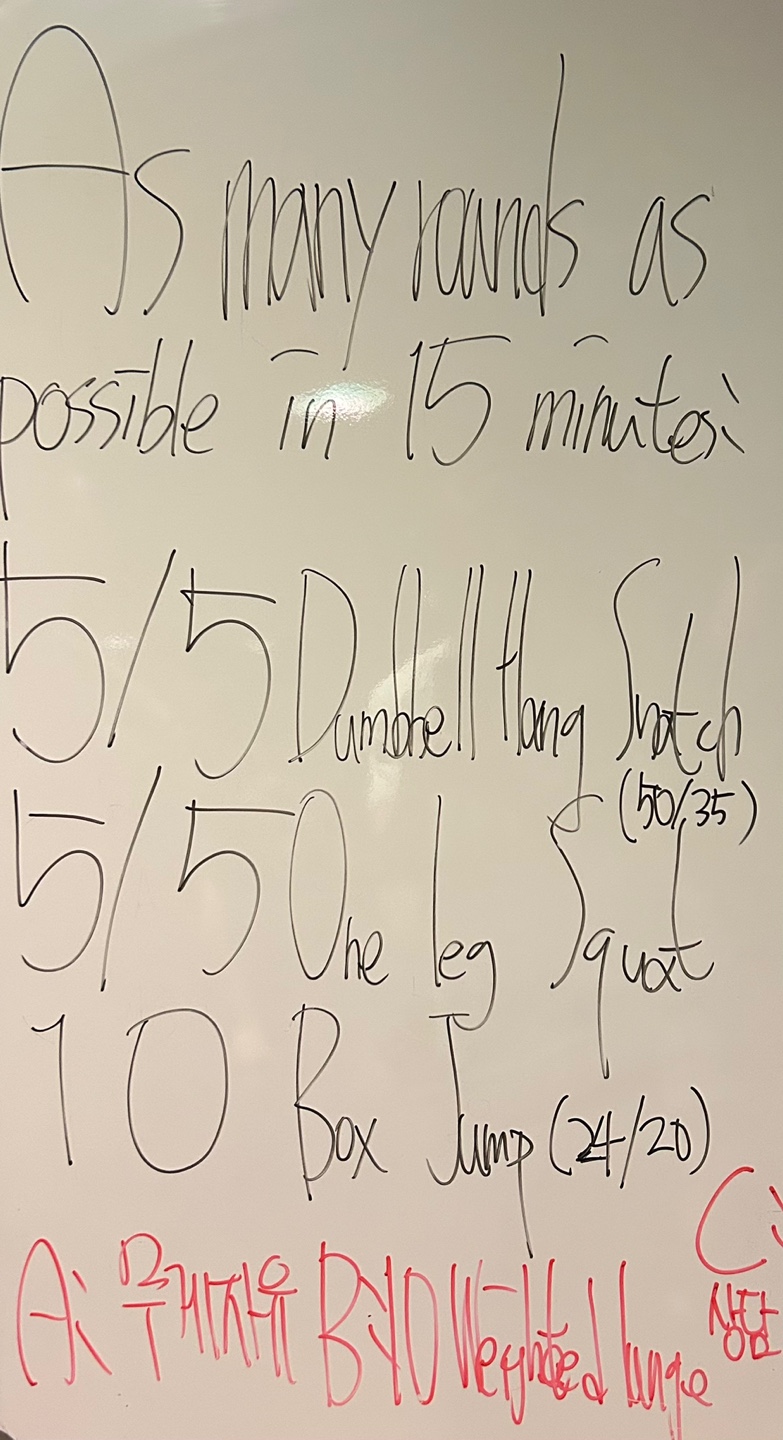 As many rounds as
possible in 15 minutes:
5/5 Dumbbell Hang Snatch
(50/35)
5/5 One leg Squat
10 Box Jump (24/20)
A: 무게자유 B: 10 Weighted lunge
C:
상담